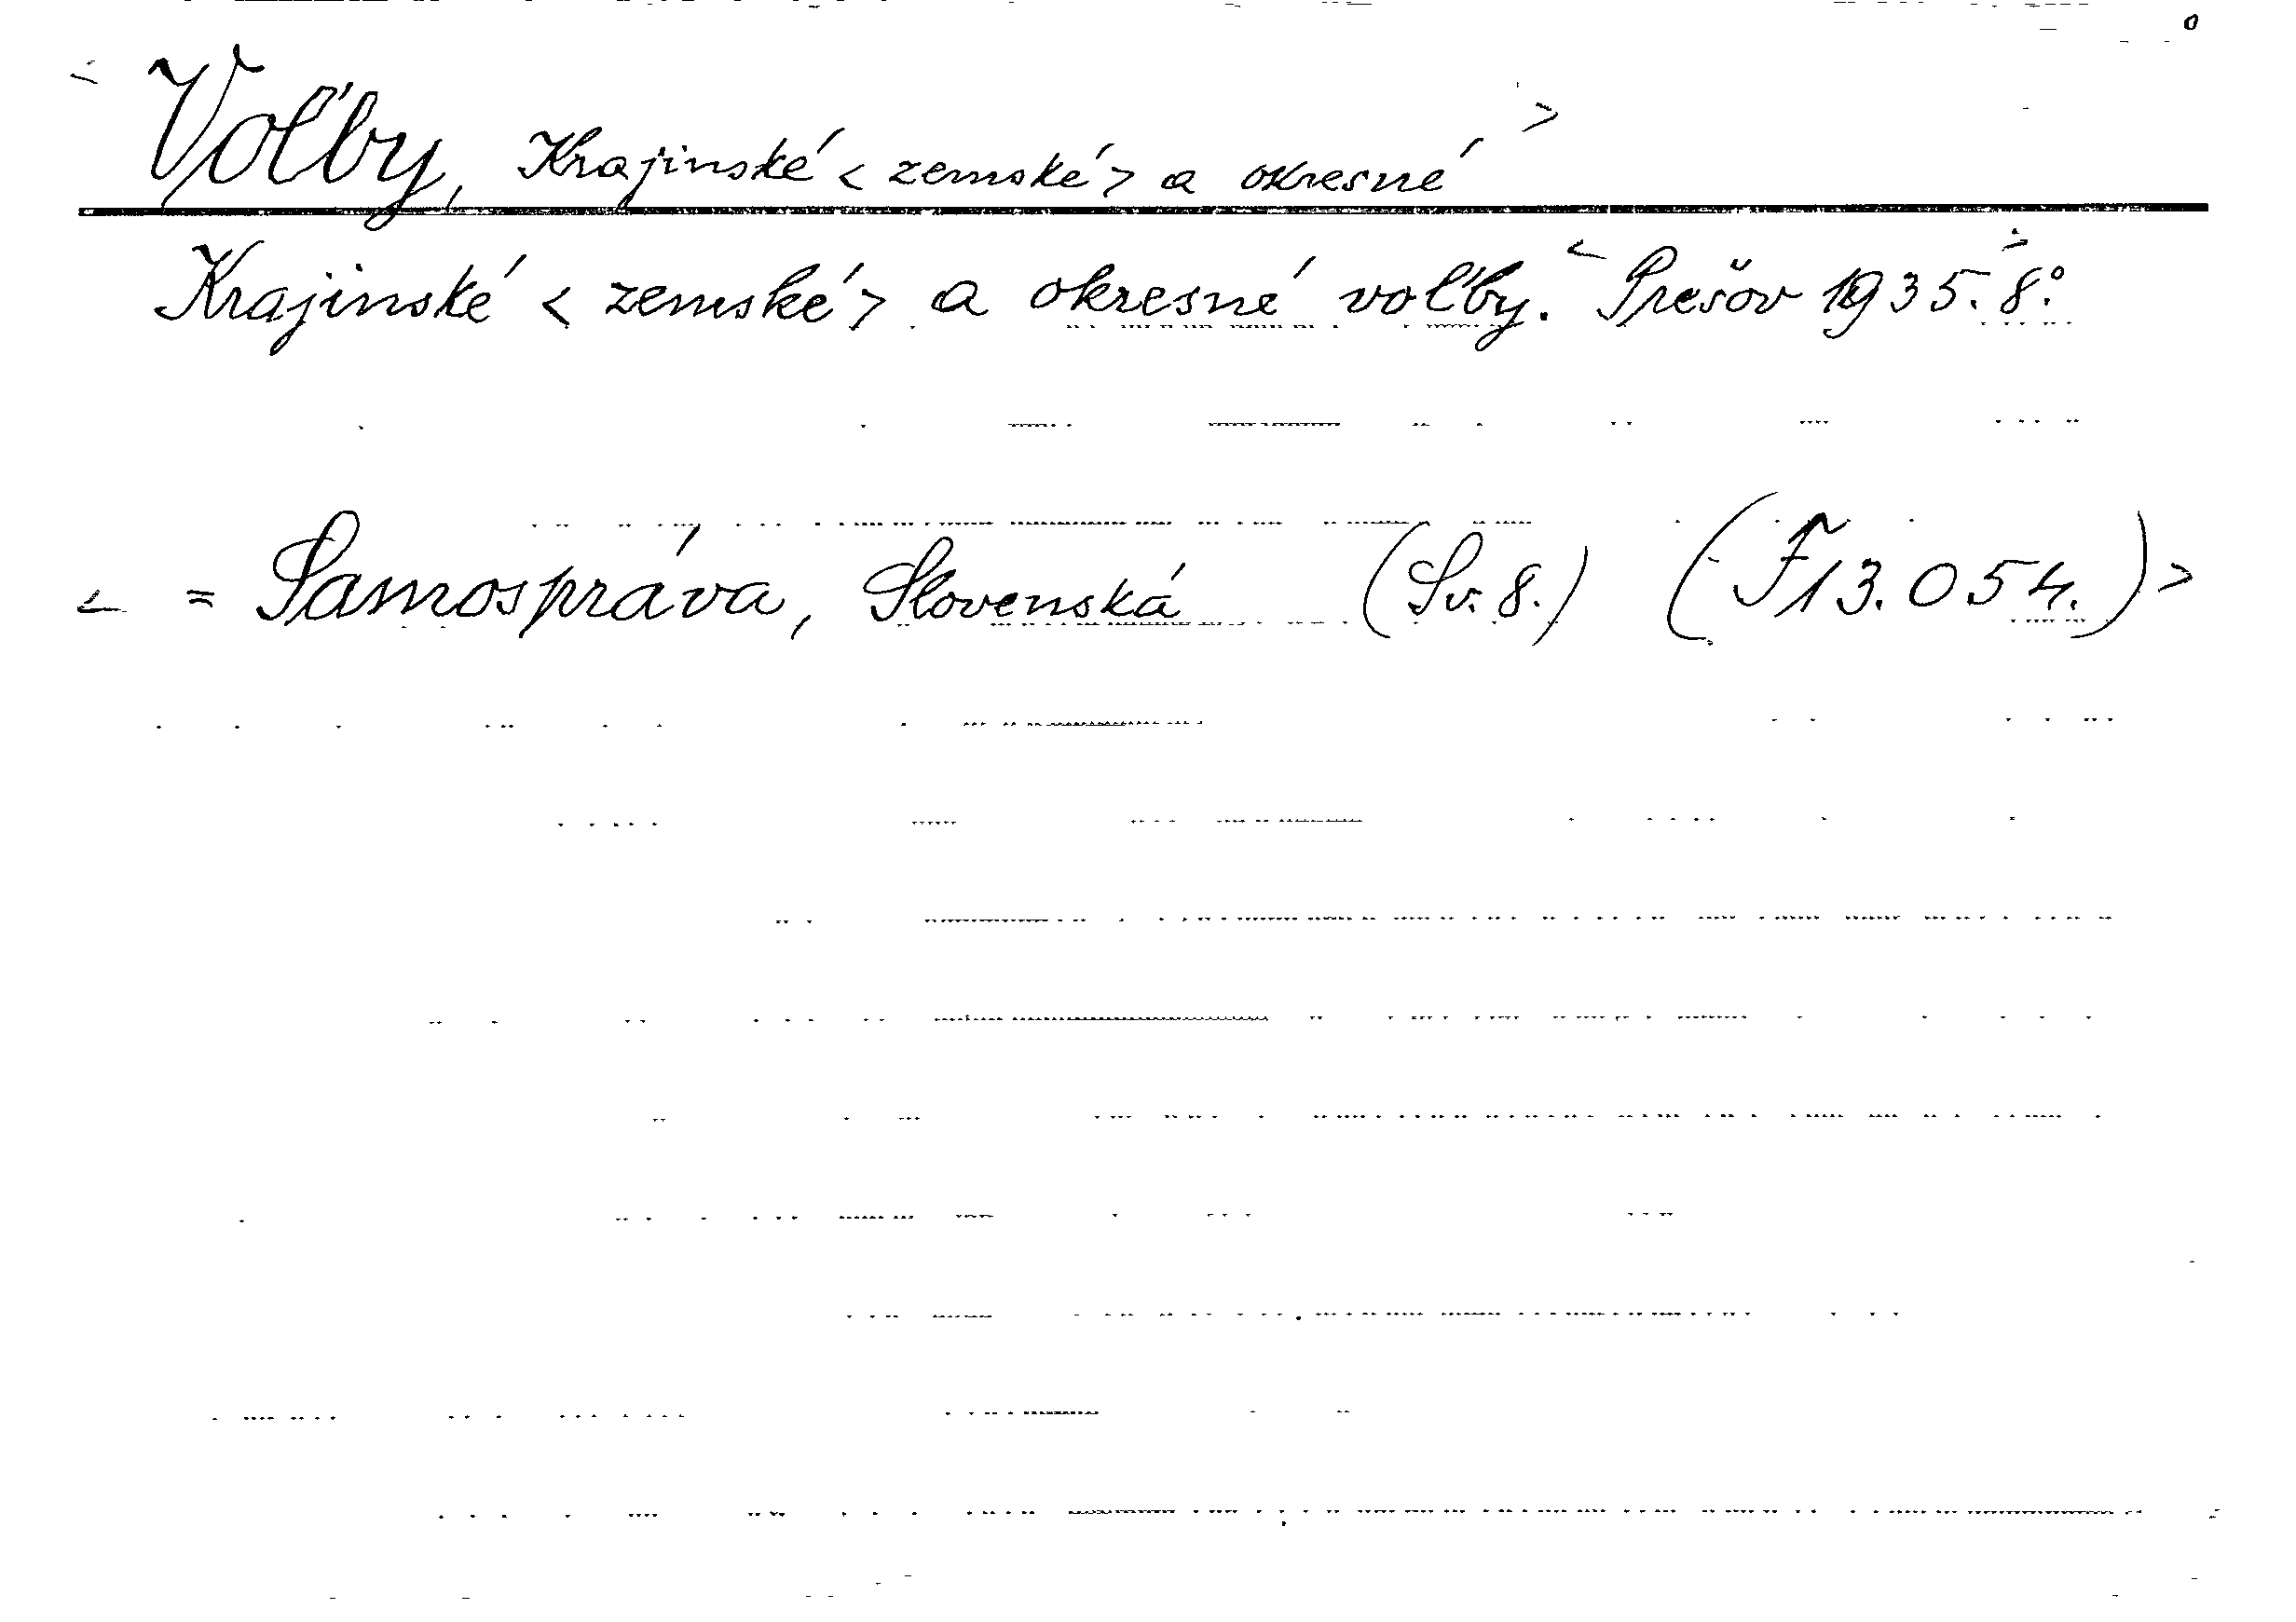 < Voľby, Krajinské < zemské > a okresné >
Krajinské < zemské > a okresné voľby. < Prešov 1935. > 8°
< = Samospráva, Slovenská (Sv. 8.) (F 13.054.) >